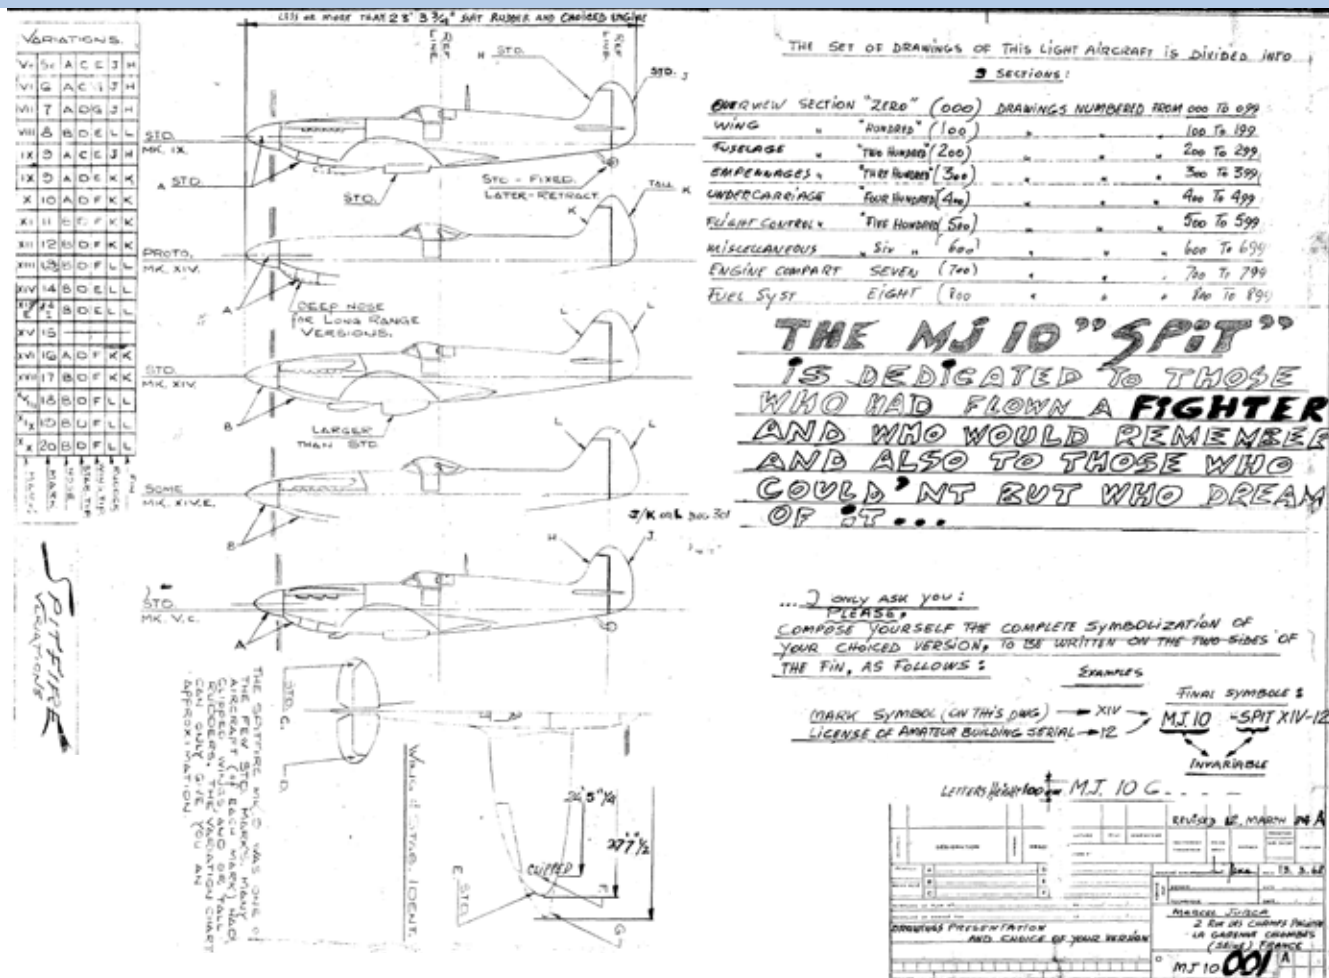 LESS OR MORE THAN 23' 3 3/4" SUIT RUDDER AND CHOICED ENGINE
VARIATIONS.
V 5c A C E J H
VI 6 A C J H
VII 7 A D G J H
VIII 8 B D E L L
IX 9 A C E J H
IX 9 A D E K K
X 10 A D F K K
XI 11 F K K
XII 12 B D F K K
XIII 13 B D F L L
XIV 14 B D E L L
B D E L L
XV 15
XVI 16 A D F K K
XVII 17 B D F K K
18 B D F L L
XIX 19 B D F L L
XX 20 B D F L L
MARK
NOSE
STAB. TIP
WING TIP
RUDDER
FIN
SPITFIRE
VARIATIONS
REF LINE
REF LINE
H STD.
STD. J
STD.
MK. IX.
A STD.
STD.
STD - FIXED.
LATER - RETRACT.
TALL K
K
PROTO.
MK. XIV.
A
DEEP NOSE
FOR LONG RANGE
VERSIONS.
L
L
STD.
MK. XIV
B
LARGER
THAN STD
L
L
SOME
MK. XIV.E.
B
J/K OR L DWG 301
H
J
STD.
MK. V.C.
A
STD. C.
D.
THE SPITFIRE MK. 9 WAS ONE OF
THE FEW STD. MARKS. MANY
AIRCRAFT (OF EACH MARK) HAD
CLIPPED WINGS AND OR TALL
RUDDERS. THE VARIATION CHART
CAN ONLY GIVE YOU AN
APPROXIMATION.
WING & STAB. IDENT.
5" 1/4
CLIPPED
E STD.
F
G
THE SET OF DRAWINGS OF THIS LIGHT AIRCRAFT IS DIVIDED INTO
9 SECTIONS:
OVERVIEW SECTION "ZERO" (000) DRAWINGS NUMBERED FROM 000 TO 099
WING " "HUNDRED" (100) " " " 100 TO 199
FUSELAGE " "TWO HUNDRED" (200) " " " 200 TO 299
EMPENNAGES " "THRE HUNDRED" (300) " " " 300 TO 399
UNDERCARRIAGE "FOUR HUNDRED" (400) " " " 400 TO 499
FLIGHT CONTROL " "FIVE HUNDRED" (500) " " " 500 TO 599
MISCELLANEOUS " SIX " (600) " " " 600 TO 699
ENGINE COMPART SEVEN (700) " " " 700 TO 799
FUEL SYST EIGHT (800 " " " 800 TO 899
THE MJ 10 "SPIT"
IS DEDICATED TO THOSE
WHO HAD FLOWN A FIGHTER
AND WHO WOULD REMEMBER
AND ALSO TO THOSE WHO
COULD'NT BUT WHO DREAM
OF IT...
... I ONLY ASK YOU:
PLEASE,
COMPOSE YOURSELF THE COMPLETE SYMBOLIZATION OF
YOUR CHOICED VERSION, TO BE WRITTEN ON THE TWO SIDES OF
THE FIN, AS FOLLOWS:
EXAMPLES
FINAL SYMBOLE:
MARK SYMBOL (ON THIS DWG) → XIV
LICENSE OF AMATEUR BUILDING SERIAL → 12
MJ.10 - SPIT XIV-12
INVARIABLE
LETTERS HEIGHT 100 MJ. 10 G
REVISED 12. MARTH A
DESIGNATION
13. 3. 68
MARCEL JURCA
2 RUE DES CHAMPS
LA GARENNE COLOMBES
(SEINE) FRANCE
DRAWINGS PRESENTATION
AND CHOICE OF YOUR VERSION
MJ 10 001 A